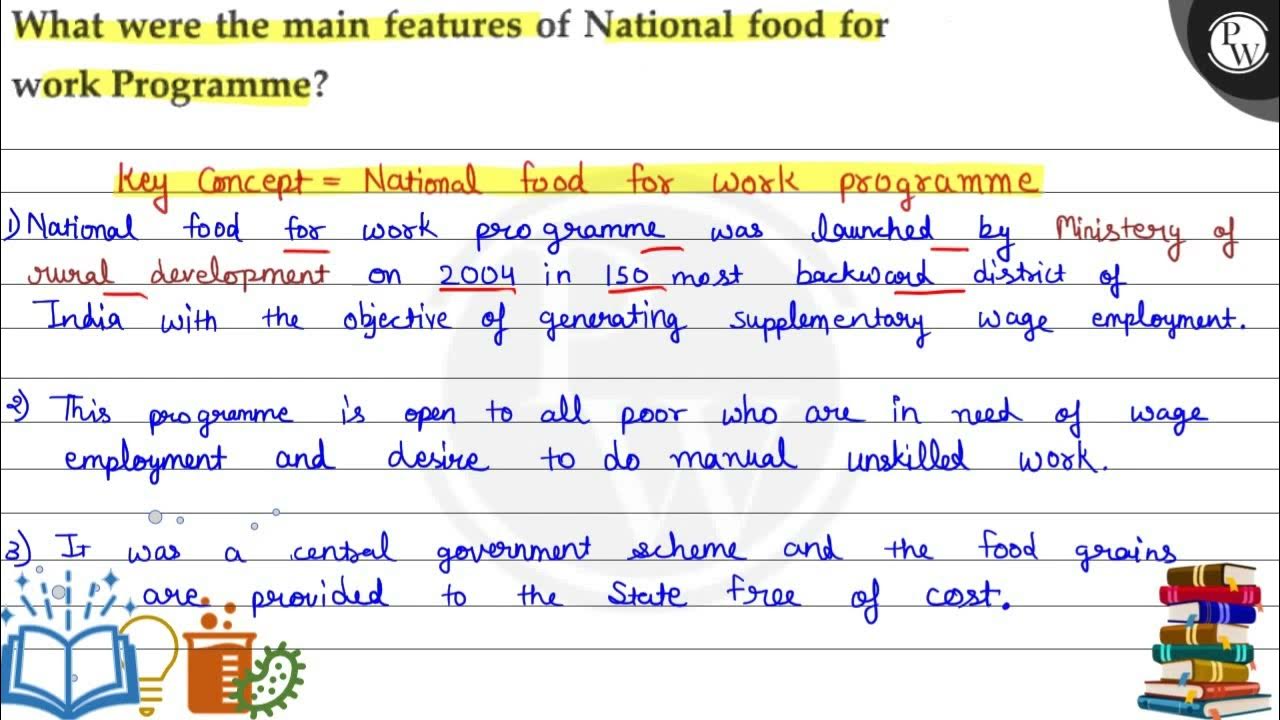 What were the main features of National food for
work Programme?
PW
Key Concept = National food for work programme
1) National food for work programme was launched by Ministery of
rural development on 2004 in 150 most backward district of
India with the objective of generating supplementary wage employment.
2) This programme is open to all poor who are in need of wage
employment and desire to do manual unskilled work.
3) It was a central government scheme and the food grains
are provided to the State free of cost.